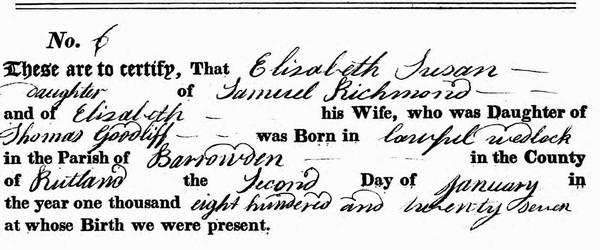 No. 6
These are to certify, That Elisabeth Susan
daughter of Samuel Richmond
and of Elizabeth his Wife, who was Daughter of
Thomas Goodliff was Born in lawful wedlock
in the Parish of Barrowden in the County
of Rutland the Second Day of January in
the year one thousand eight hundred and twenty seven
at whose Birth we were present.